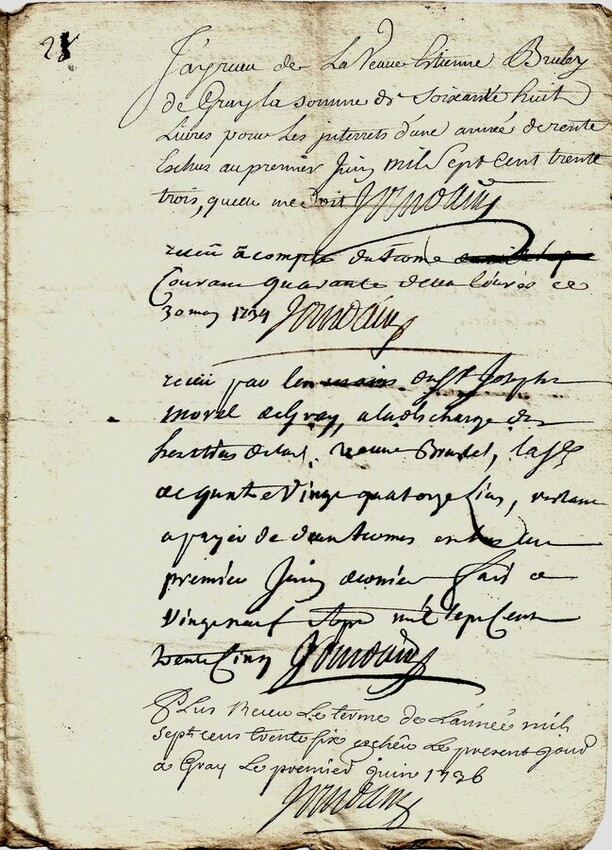 28
J'ay receu de La Veuve Estienne Brulez
de Gray la somme de soixante huit
Livres pour les interrets d'une année de rente
Eschus au premier Juin mil Sept cent trente
trois, quelle me doit Jourdain
receu a compte du terme
Courant quarante deux livres ce
30 may 1734 Jourdain
receu par les mains du Sr Joseph
morel de Gray, a la descharge des
heritiers de lad. veuve
de quatre Vingt quatorze livres, restant
a payer de deux termes eschus au
premier Juin dernier fait ce
Vingt neuf mil sept Cent
trente Cinq Jourdain
Plus Receu Le terme de L'année mil
sept cens trente six eschëu Le present jour
a Gray Le premier juin 1736
Jourdain